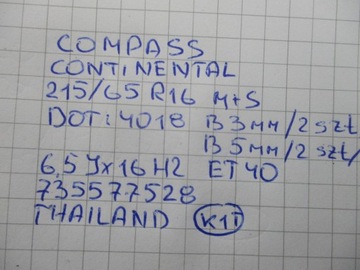 COMPASS
CONTINENTAL
215/65 R16 M+S
DOT: 4018 B 3мм/2 szt
B 5мм/2 szt/
6.5Jx16 H2 ET40
735577528
THAILAND K1T